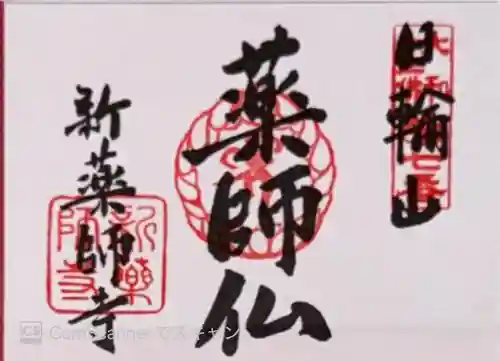 日輪山
薬師仏
新薬師寺
新薬
師寺
CS CamScanner でスキャン